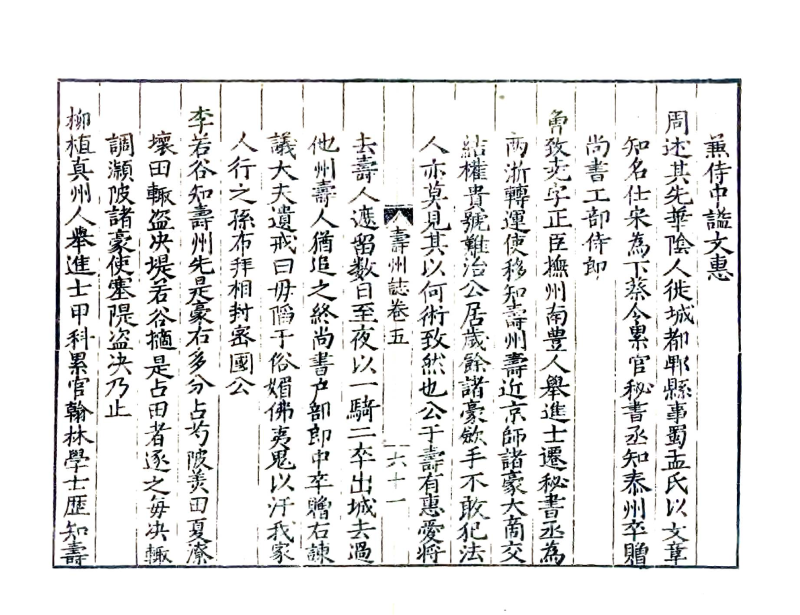 兼侍中謚文惠
周述其先華陰人徙城都郫縣事蜀孟氏以文章
知名仕宋為下蔡令累官秘書丞知泰州卒贈
尚書工部侍郎
魯致堯字正臣撫州南豊人舉進士遷秘書丞為
兩浙轉運使移知壽州壽近京師諸豪大商交
結權貴號難治公居歲餘諸豪斂手不敢犯法
人亦莫見其以何術致然也公于壽有惠愛將
壽州誌卷五
六十一
去壽人遮留数日至夜以一騎二卒出城去過
他州壽人猶追之終尚書户部郎中卒贈右諫
議大夫遺戒曰毋陷于俗媚佛夷鬼以汙我家
人行之孫布拜相封宻國公
李若谷知壽州先是豪右多分占芍陂美田夏潦
壞田輙盗决堤若谷擿是占田者逐之每决輙
調瀕陂諸豪使塞隄盗决乃止
柳植真州人舉進士甲科累官翰林學士歷知壽